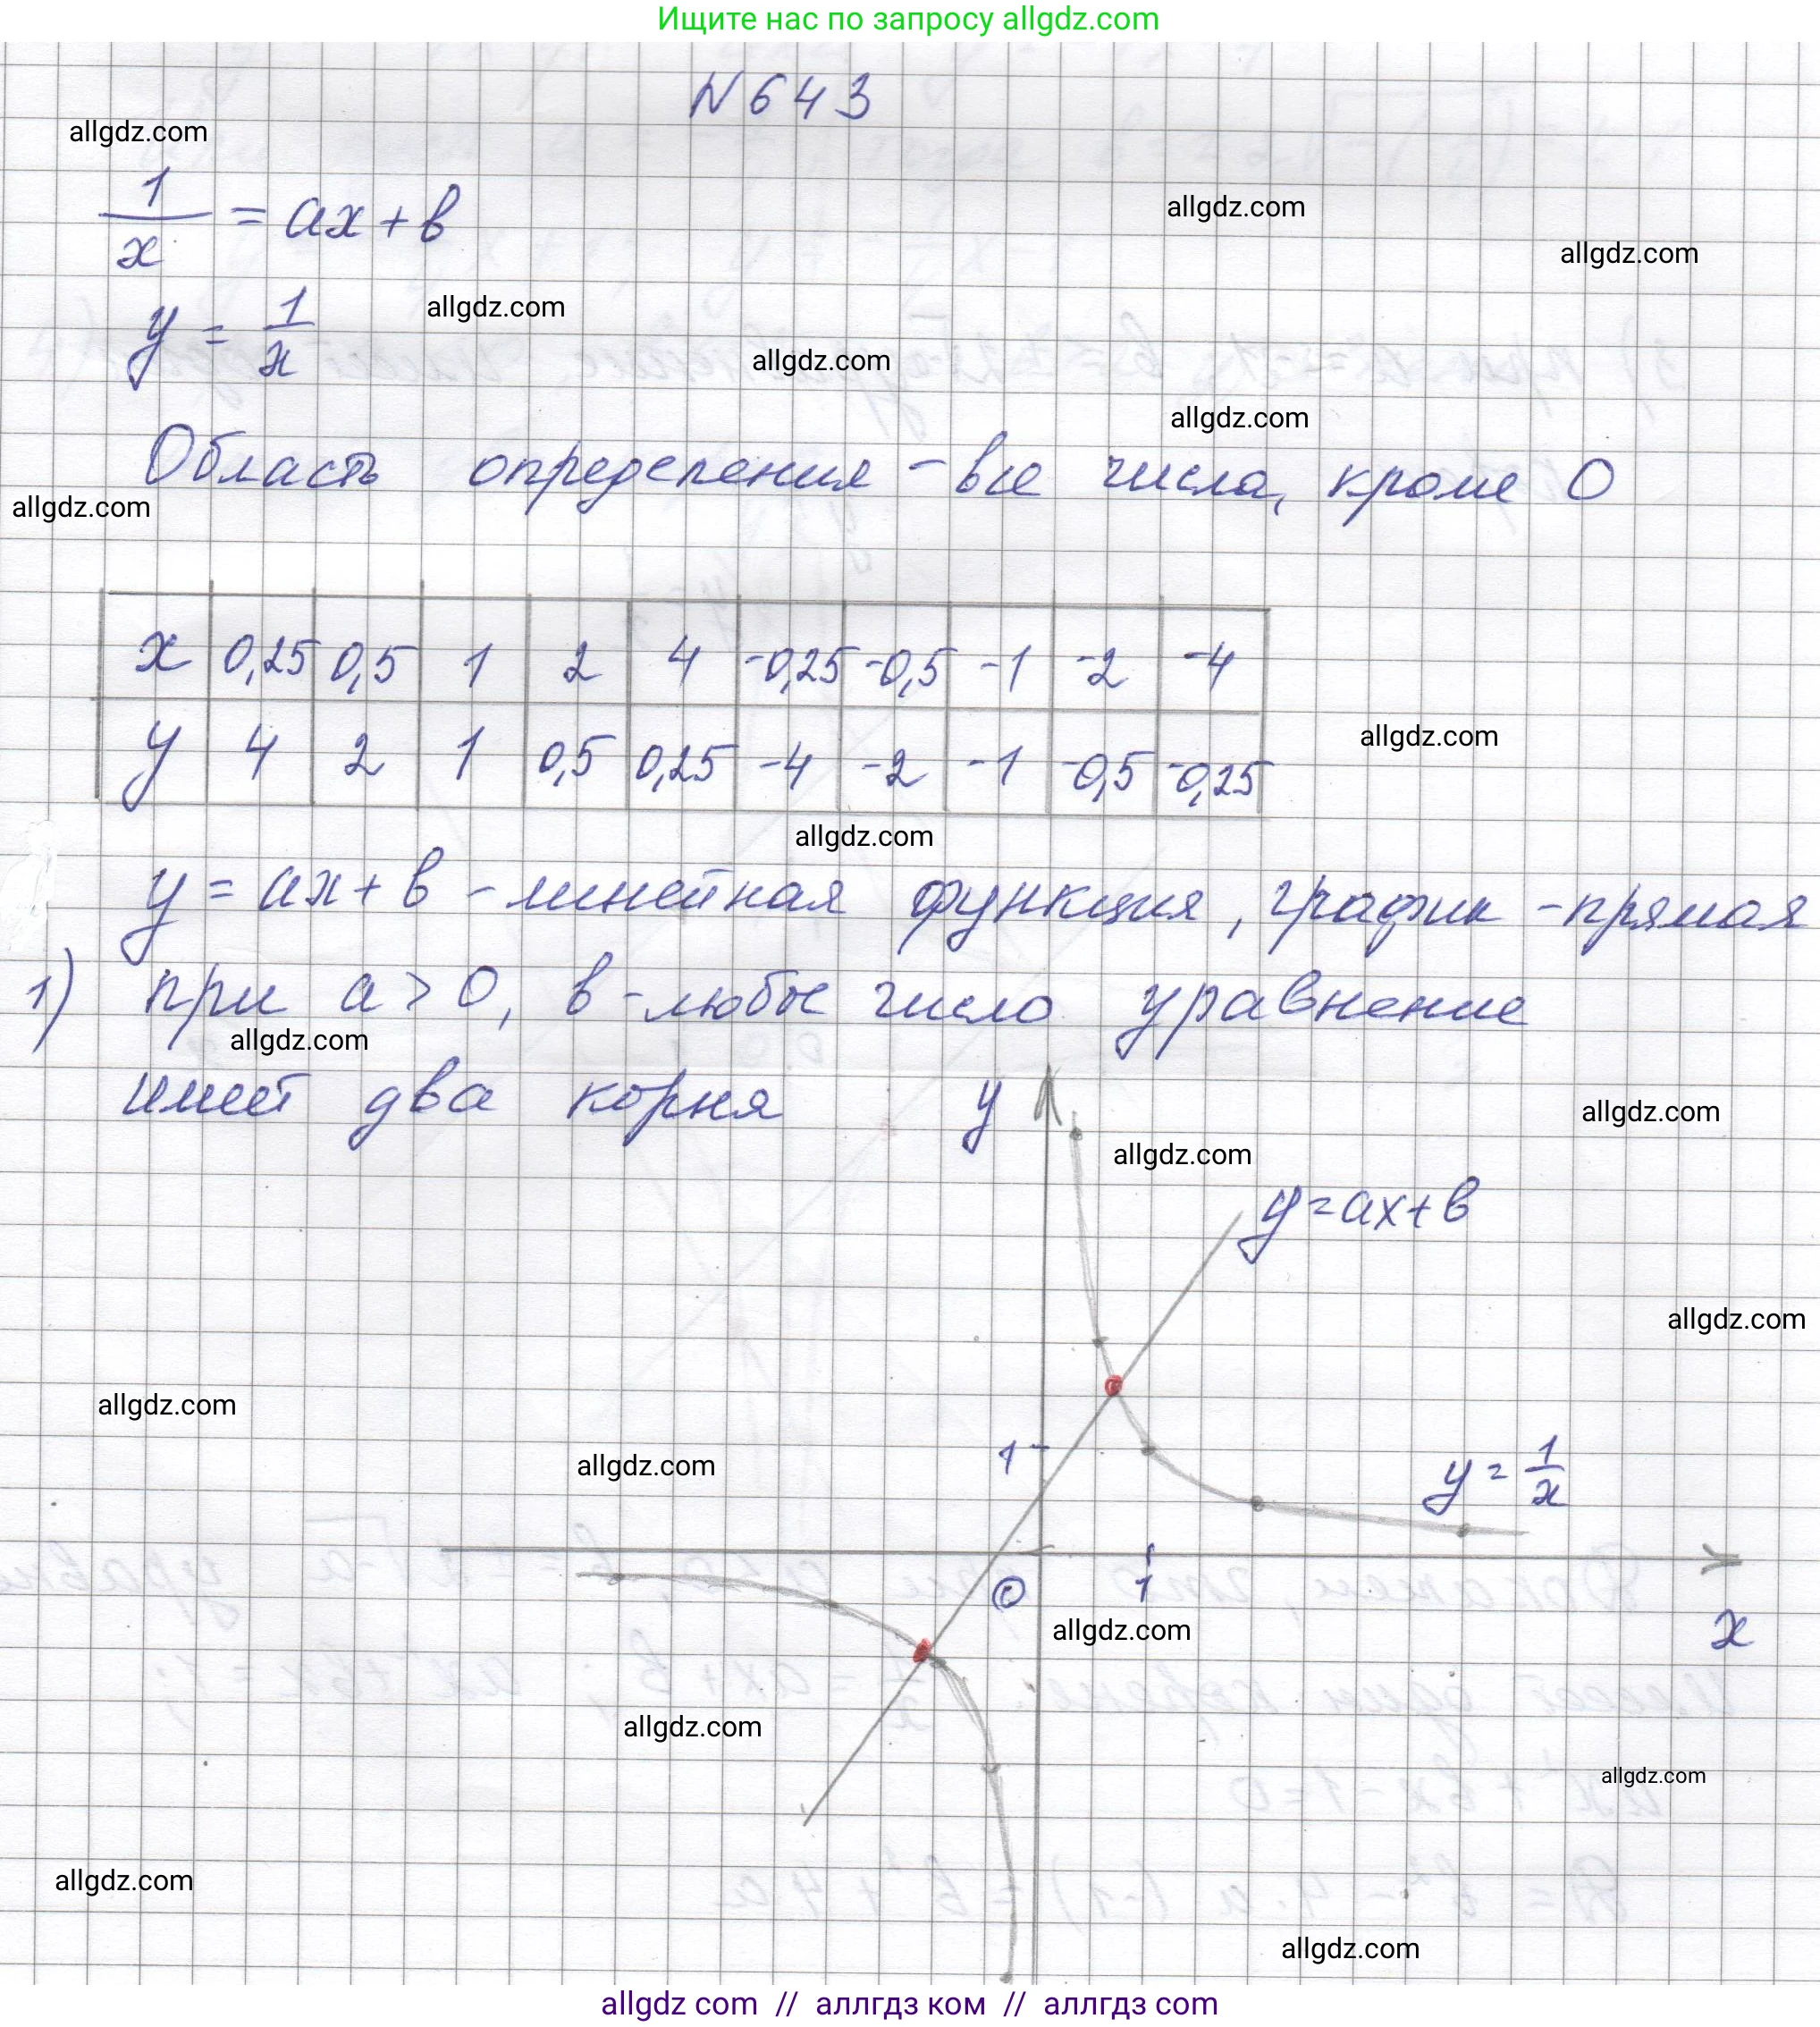 Ищите нас по запросу allgdz.com
N 643
allgdz.com
1/x = ax + в
allgdz.com
allgdz.com
y = 1/x
allgdz.com
allgdz.com
allgdz.com
Область определения - все числа, кроме 0
allgdz.com
x 0,25 0,5 1 2 4 -0,25 -0,5 -1 -2 -4
y 4 2 1 0,5 0,25 -4 -2 -1 -0,5 -0,25
allgdz.com
allgdz.com
y = ax + в - линейная функция, график - прямая
1) при a > 0, в - любое число уравнение
allgdz.com
имеет два корня
y
allgdz.com
allgdz.com
y = ax + в
allgdz.com
allgdz.com
allgdz.com
1
y = 1/x
0
1
x
allgdz.com
allgdz.com
allgdz.com
allgdz.com
allgdz.com
allgdz com // аллгдз ком // аллгдз com